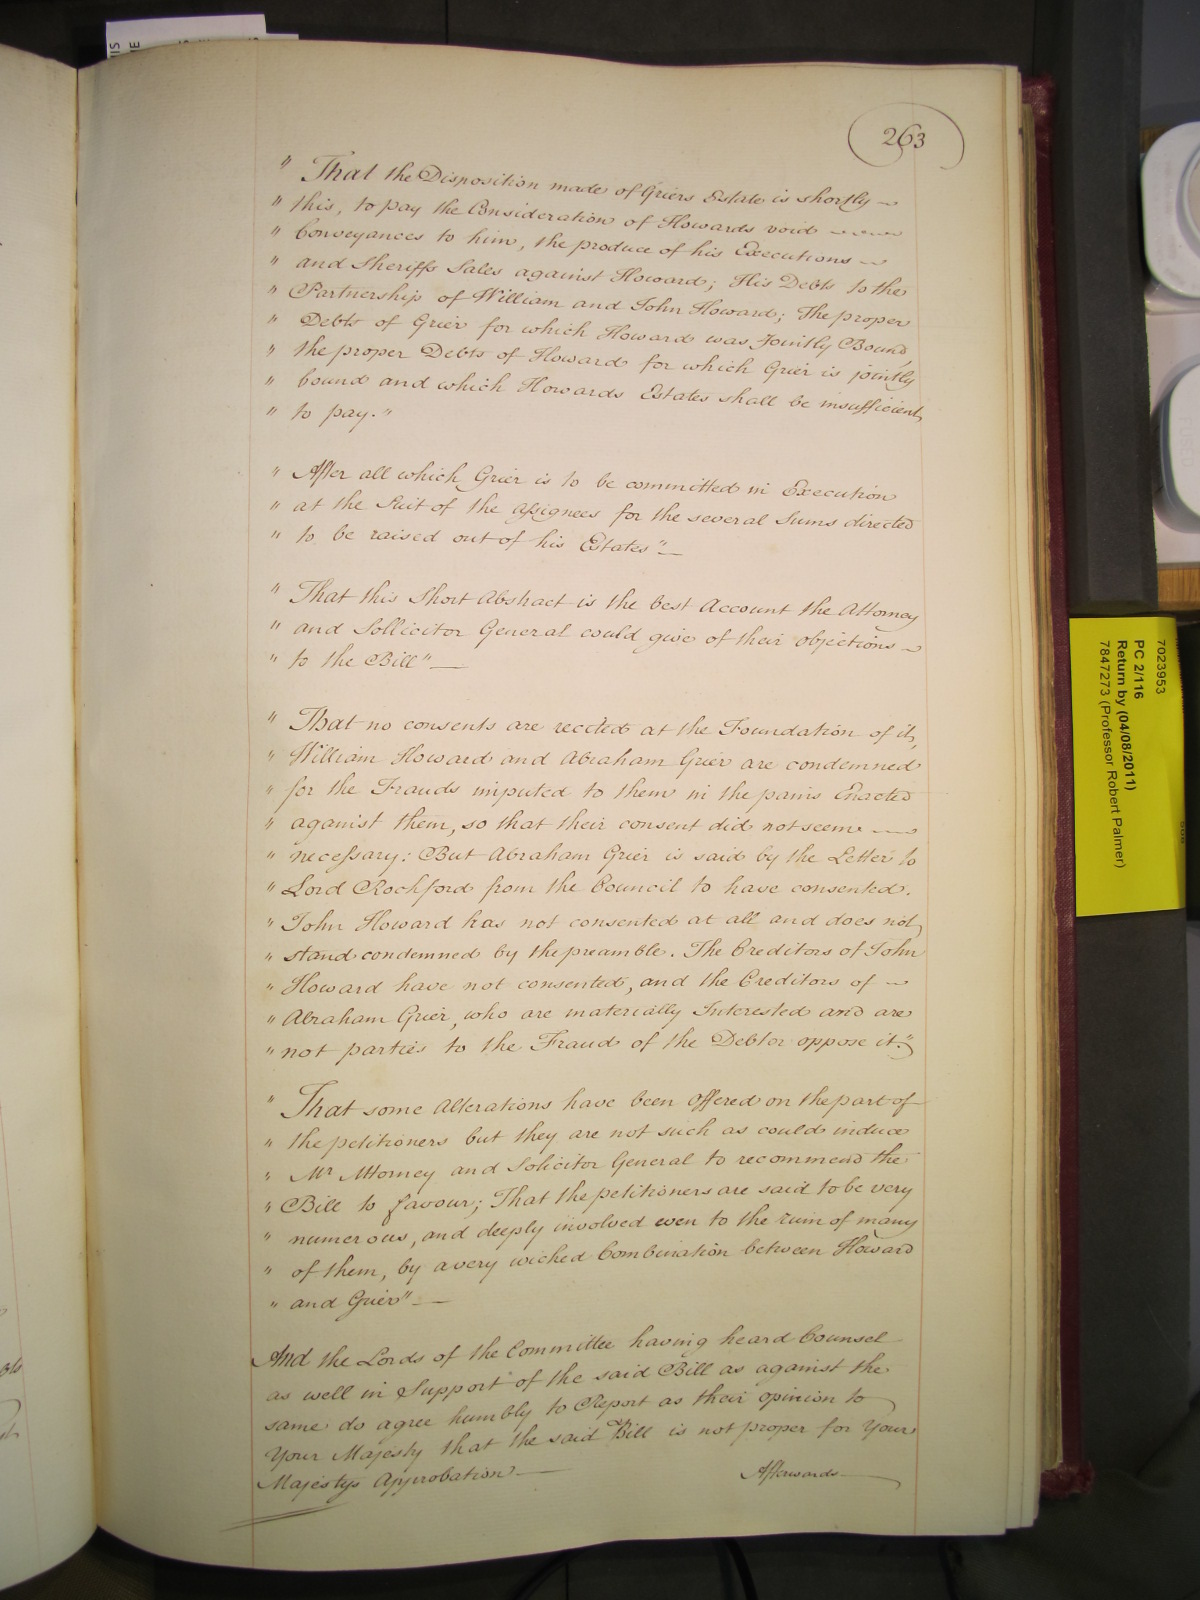 263
" That the Disposition made of Griers Estate is shortly
" this, to pay the Consideration of Howards void
" Conveyances to him, the produce of his Executions
" and Sheriffs Sales against Howard; His Debts to the
" Partnership of William and John Howard; The proper
" Debts of Grier for which Howard was Jointly Bound,
" the proper Debts of Howard for which Grier is jointly
" bound and which Howards Estates shall be insufficient
" to pay."
" After all which Grier is to be committed in Execution
" at the Suit of the assignees for the several Sums directed
" to be raised out of his Estates"
" That this Short Abstract is the best Account the Attorney
" and Sollicitor General could give of their objections
" to the Bill"
" That no consents are recited at the Foundation of it,
" William Howard and Abraham Grier are condemned
" for the Frauds imputed to them in the pains Enacted
" against them, so that their consent did not seem
" necessary: But Abraham Grier is said by the Letter to
" Lord Rochford from the Council to have consented.
" John Howard has not consented at all and does not
" stand condemned by the preamble. The Creditors of John
" Howard have not consented, and the Creditors of
" Abraham Grier, who are materially Interested and are
" not parties to the Fraud of the Debtor oppose it."
" That some Alterations have been offered on the part of
" the petitioners but they are not such as could induce
" Mr Attorney and Solicitor General to recommend the
" Bill to favour; That the petitioners are said to be very
" numerous, and deeply involved even to the ruin of many
" of them, by a very wicked Combination between Howard
" and Grier"
And the Lords of the Committee having heard Counsel
as well in Support of the said Bill as against the
same do agree humbly to Report as their opinion to
Your Majesty that the said Bill is not proper for Your
Majestys Approbation
Afterwards
7023953
PC 2/116
Return by (04/08/2011)
7847273 (Professor Robert Palmer)